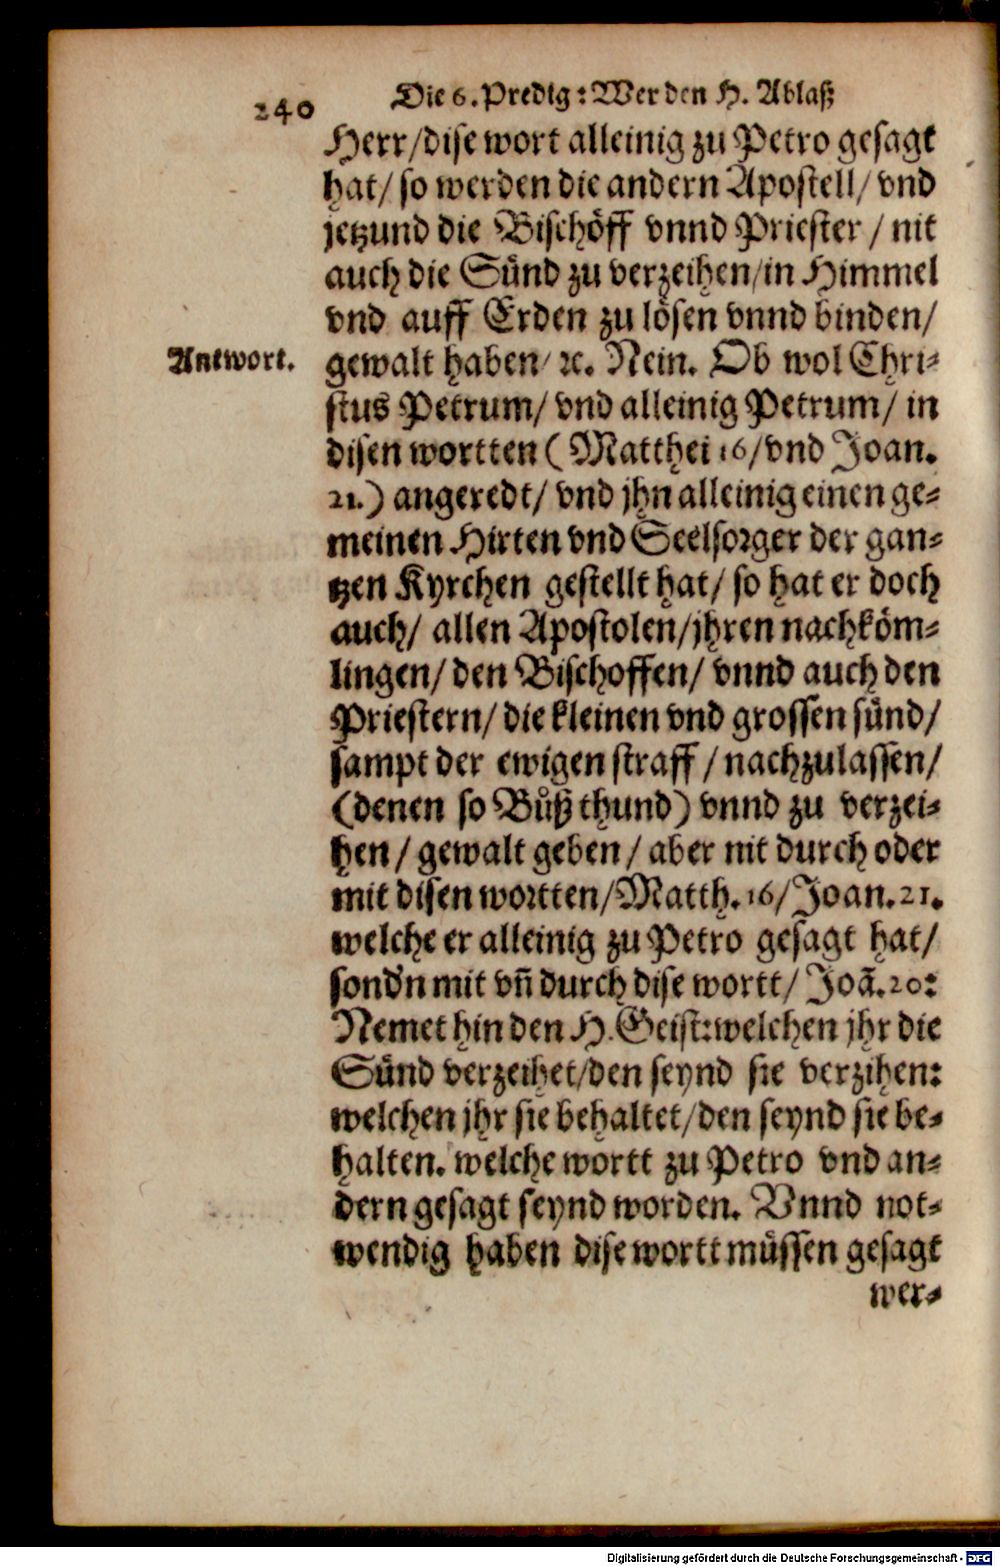 240 Die 6. Predig: Wer den H. Ablaß
Herr/dise wort alleinig zu Petro gesagt
hat/ so werden die andern Apostell/ vnd
jetzund die Bischöff vnnd Priester / nit
auch die Sünd zu verzeihen/in Himmel
vnd auff Erden zu lösen vnnd binden/
Antwort. gewalt haben/ ꝛc. Nein. Ob wol Chri-
stus Petrum/ vnd alleinig Petrum/ in
disen wortten (Matthei 16/vnd Joan.
21.) angeredt/ vnd jhn alleinig einen ge-
meinen Hirten vnd Seelsorger der gan-
tzen Kyrchen gestellt hat/ so hat er doch
auch/ allen Apostolen/jhren nachköm-
lingen/ den Bischoffen/ vnnd auch den
Priestern/ die kleinen vnd grossen sünd/
sampt der ewigen straff / nachzulassen/
(denen so Bůß thund) vnnd zu verzei-
hen / gewalt geben / aber nit durch oder
mit disen wortten/Matth. 16/Joan. 21.
welche er alleinig zu Petro gesagt hat/
sondn̄ mit vñ durch dise wortt/ Joã. 20:
Nemet hin den H. Geist:welchen jhr die
Sünd verzeihet/den seynd sie verzihen:
welchen jhr sie behaltet/den seynd sie be-
halten. welche wortt zu Petro vnd an-
dern gesagt seynd worden. Vnnd not-
wendig haben dise wortt müssen gesagt
wer-
Digitalisierung gefördert durch die Deutsche Forschungsgemeinschaft - DFG